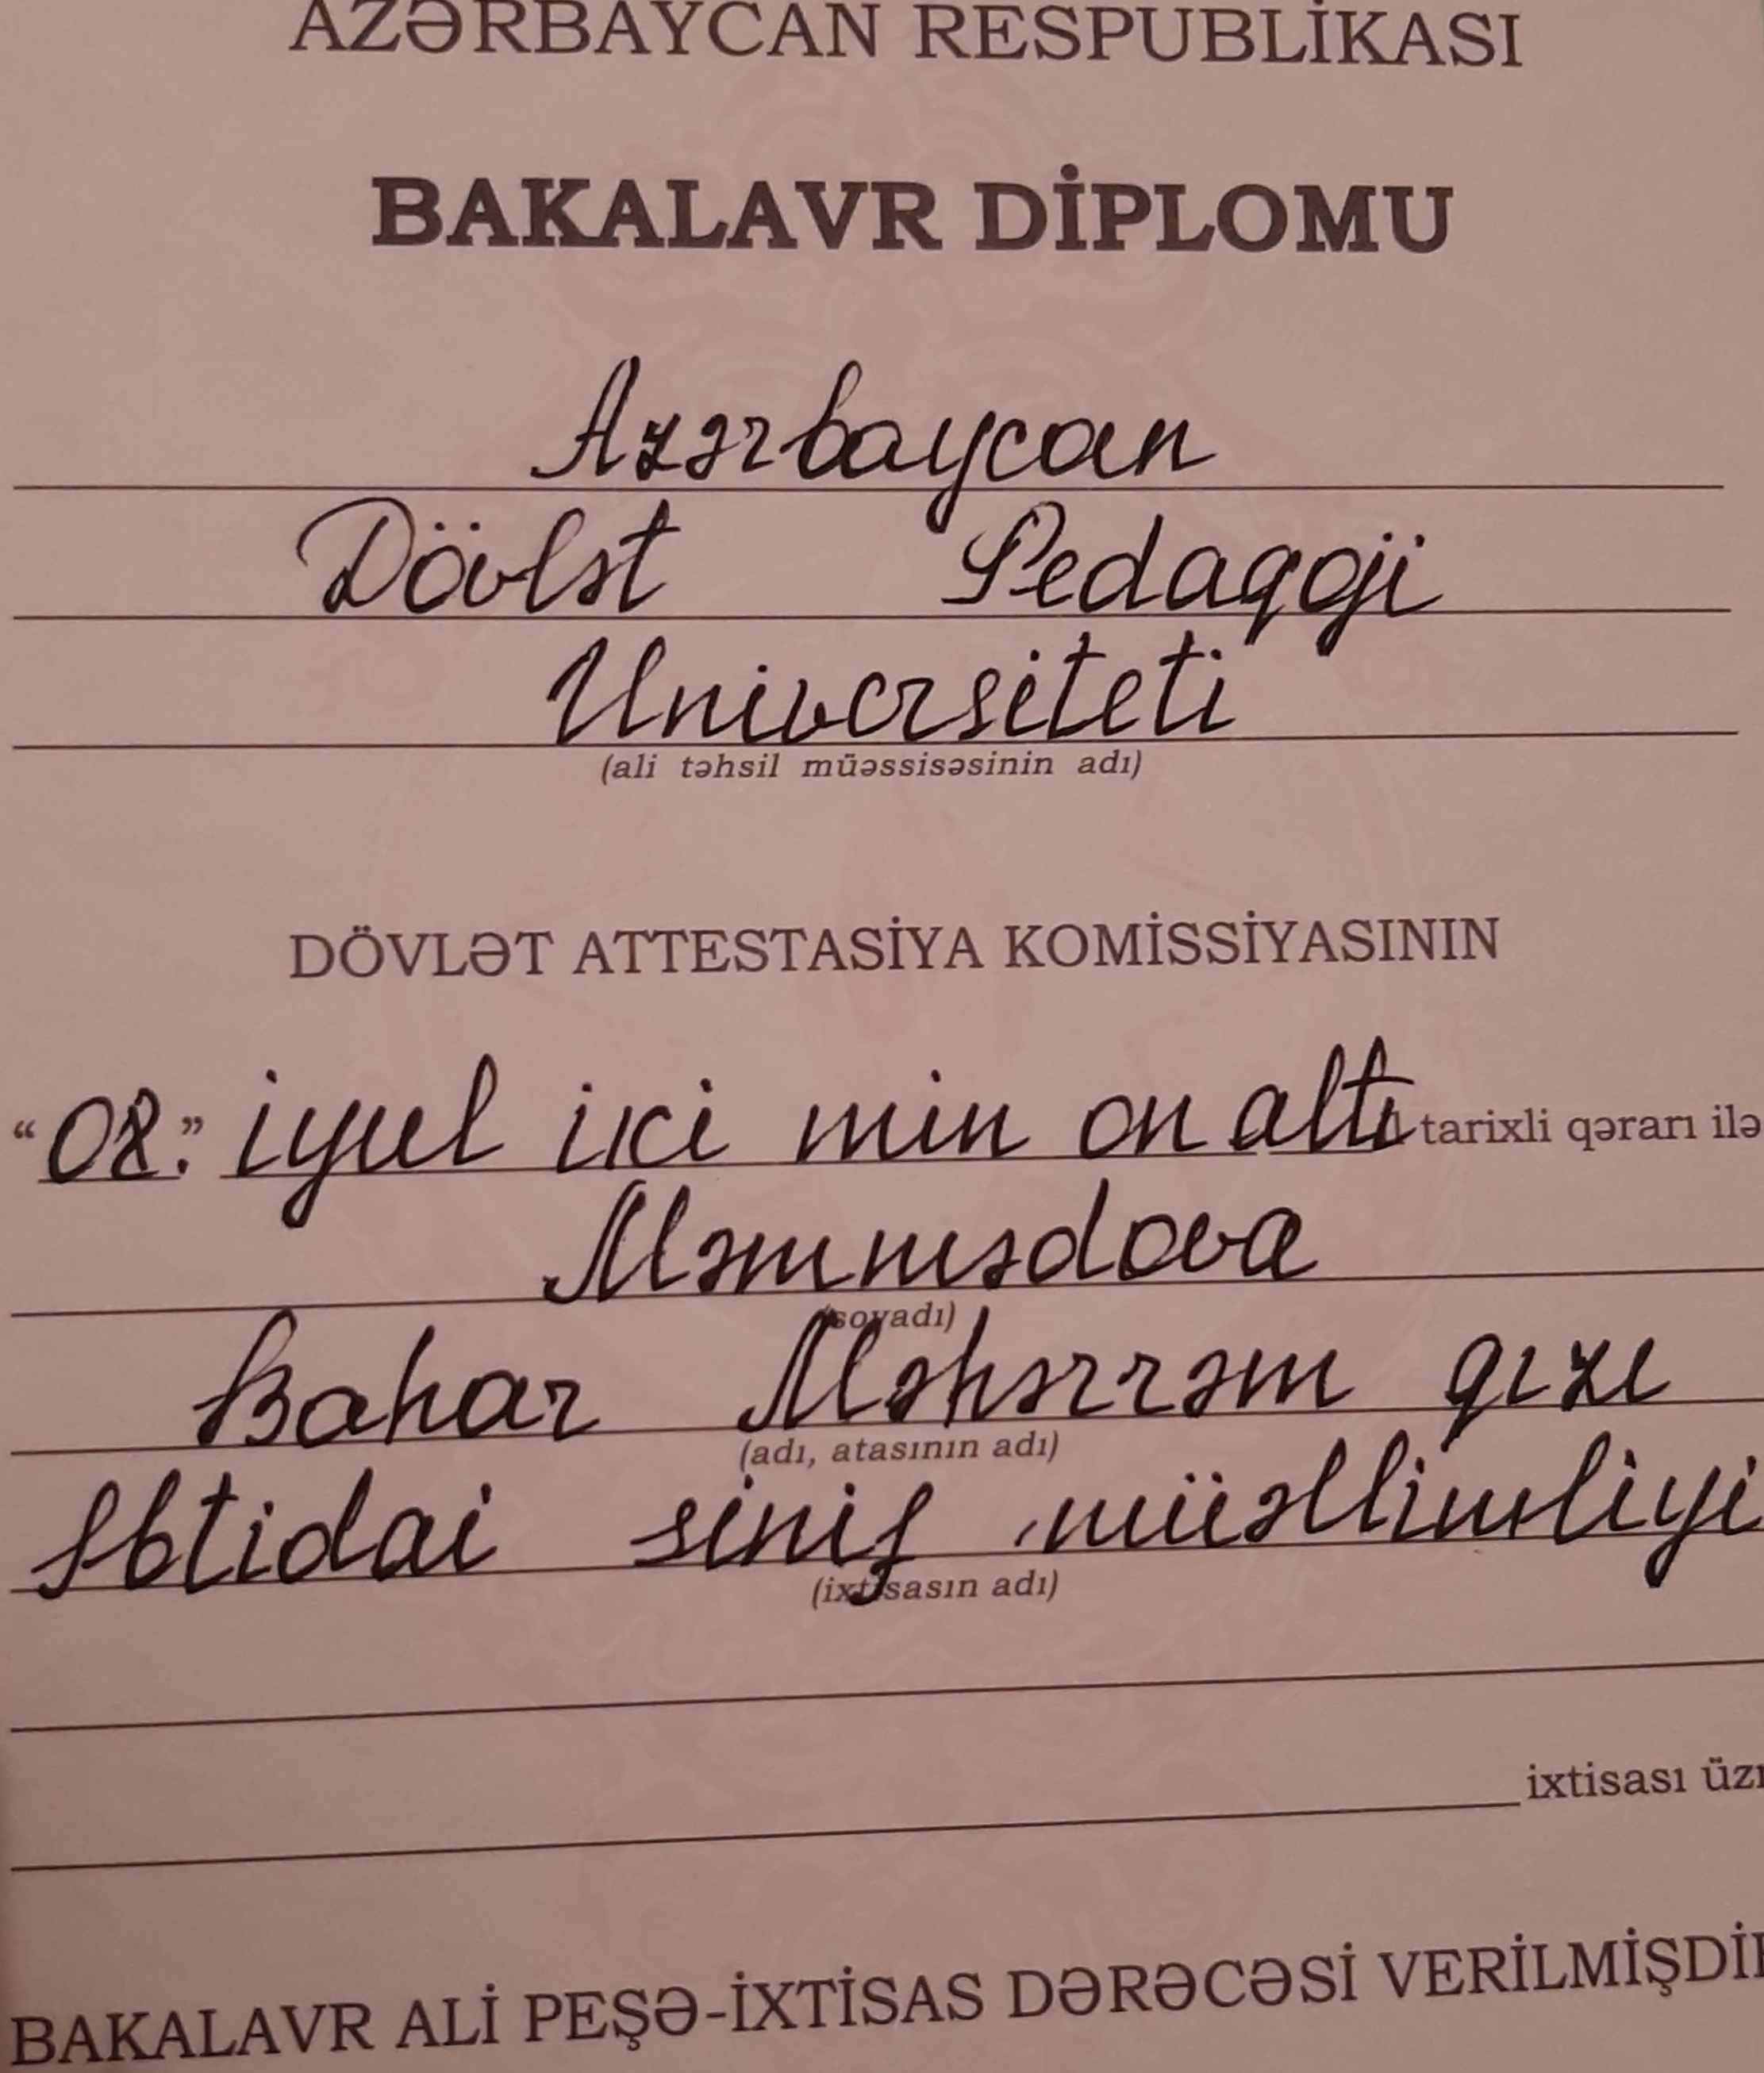 AZƏRBAYCAN RESPUBLİKASI
BAKALAVR DİPLOMU
Azərbaycan
Dövlət Pedaqoji
Universiteti
(ali təhsil müəssisəsinin adı)
DÖVLƏT ATTESTASİYA KOMİSSİYASININ
“08.” iyul iki min on altı tarixli qərarı ilə
Məmmədova
(soyadı)
Bahar Məhərrəm qızı
(adı, atasının adı)
Ibtidai sinif müəllimliyi
(ixtisasın adı)
ixtisası üzr
BAKALAVR ALİ PEŞƏ-İXTİSAS DƏRƏCƏSİ VERİLMİŞDİR